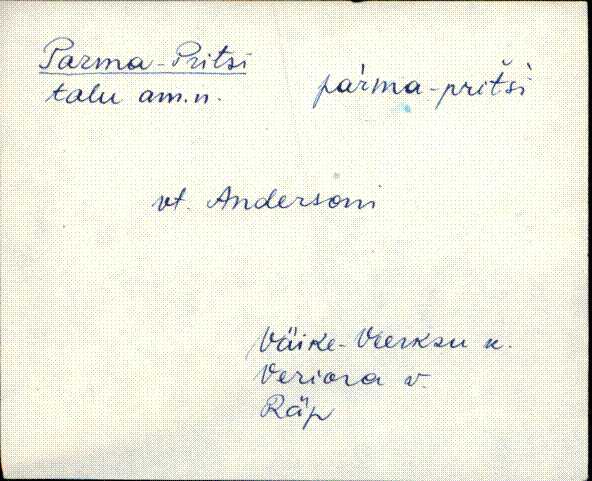 Parma-Pritsi
talu am.n.
pàrma-pritši
vt. Andersoni
Väike-Veerksu k.
Veriora v.
Räp